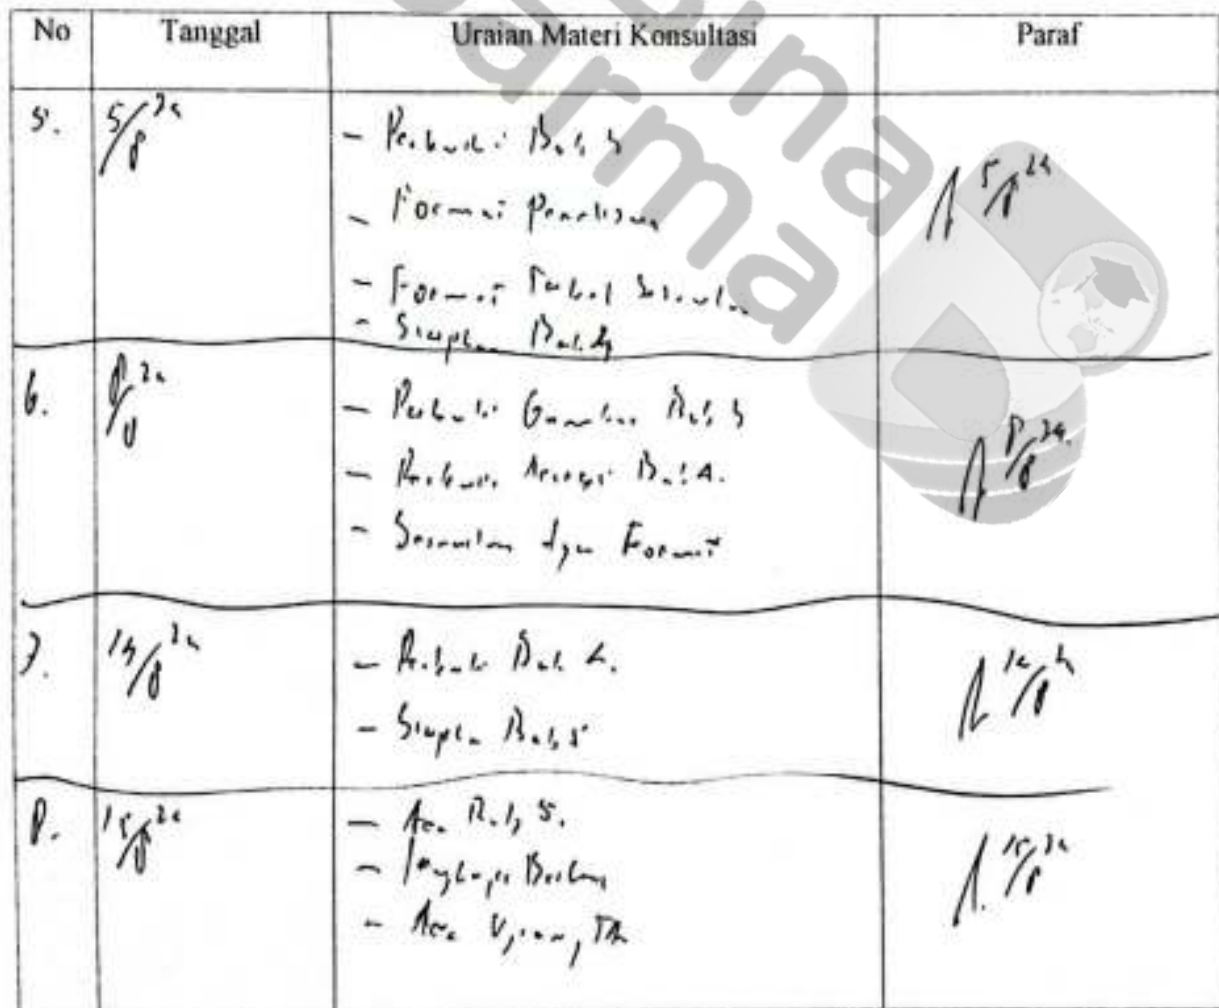 No Tanggal Uraian Materi Konsultasi Paraf
5. 5/8 24 - Perbaiki Bab 3 5/8 24
- Format Penulisan
- Format Tabel Sesuaikan
- Siapkan Bab 4
6. 8/8 24 - Perbaiki Gambar Bab 3 8/8 24
- Perbaiki Bab 4.
- Sesuaikan dgn Format
7. 14/8 24 - Perbaiki Bab 4. 14/8 24
- Siapkan Bab 5
8. 15/8 24 - Acc Bab 5. 15/8 24
- Lengkapi Berkas
- Acc Ujian TA
Bina
Darma